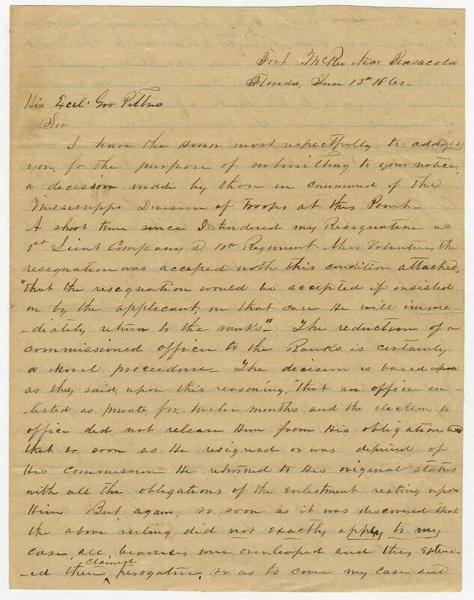 Fort McRee Near Pensacola
Florida, June 13th 1861-
His Excel. Gov Pettus
Sir
I have the honor most respectfully to address
you, for the purpose of submitting to your notice,
a decision made by those in command of the
Mississippi Division of Troops at this Point.
A short time since I tendered my Resignation as
1st Lieut Company Regiment Miss Volunteers, the
resignation was accepted with this condition attached,
"that the resignation would be accepted if insisted
on by the applicant, in that case He will imme-
-diately return to the ranks". The reduction of a
commissioned officer to the Ranks is certainly
a novel proceedure. The decision is based upon
as they said, upon this reasoning, "that an officer en-
-listed as private for twelve months and the election to
office did not release Him from His obligation
that so soon as He resigned or was deprived of
His commission He returned to His original status
with all the obligations of the enlistment resting upon
Him But again, so soon as it was discovered that
the above ruling did not exactly apply to my
case, all were overleaped and they extend-
-ed their claimed perogative, so as to cover my case and